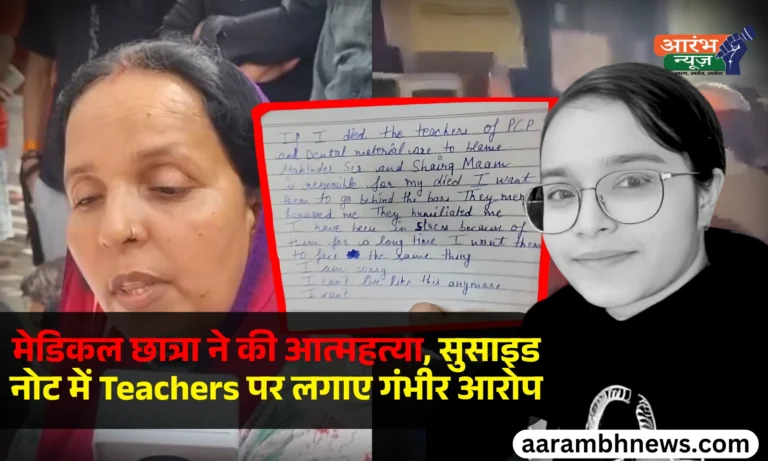 आरंभ
न्यूज़
If I died the teachers of PCP
and Dental material are to blame
Mahinder Sir and Shairg Maam
is responsible for my died I want
them to go behind the bars They men
harassed me They humiliated me
I have been in stress because of
them for a long time I want them
to face the same thing
I am sorry
I can't live like this anymore
I want
मेडिकल छात्रा ने की आत्महत्या, सुसाइड
नोट में Teachers पर लगाए गंभीर आरोप
aarambhnews.com